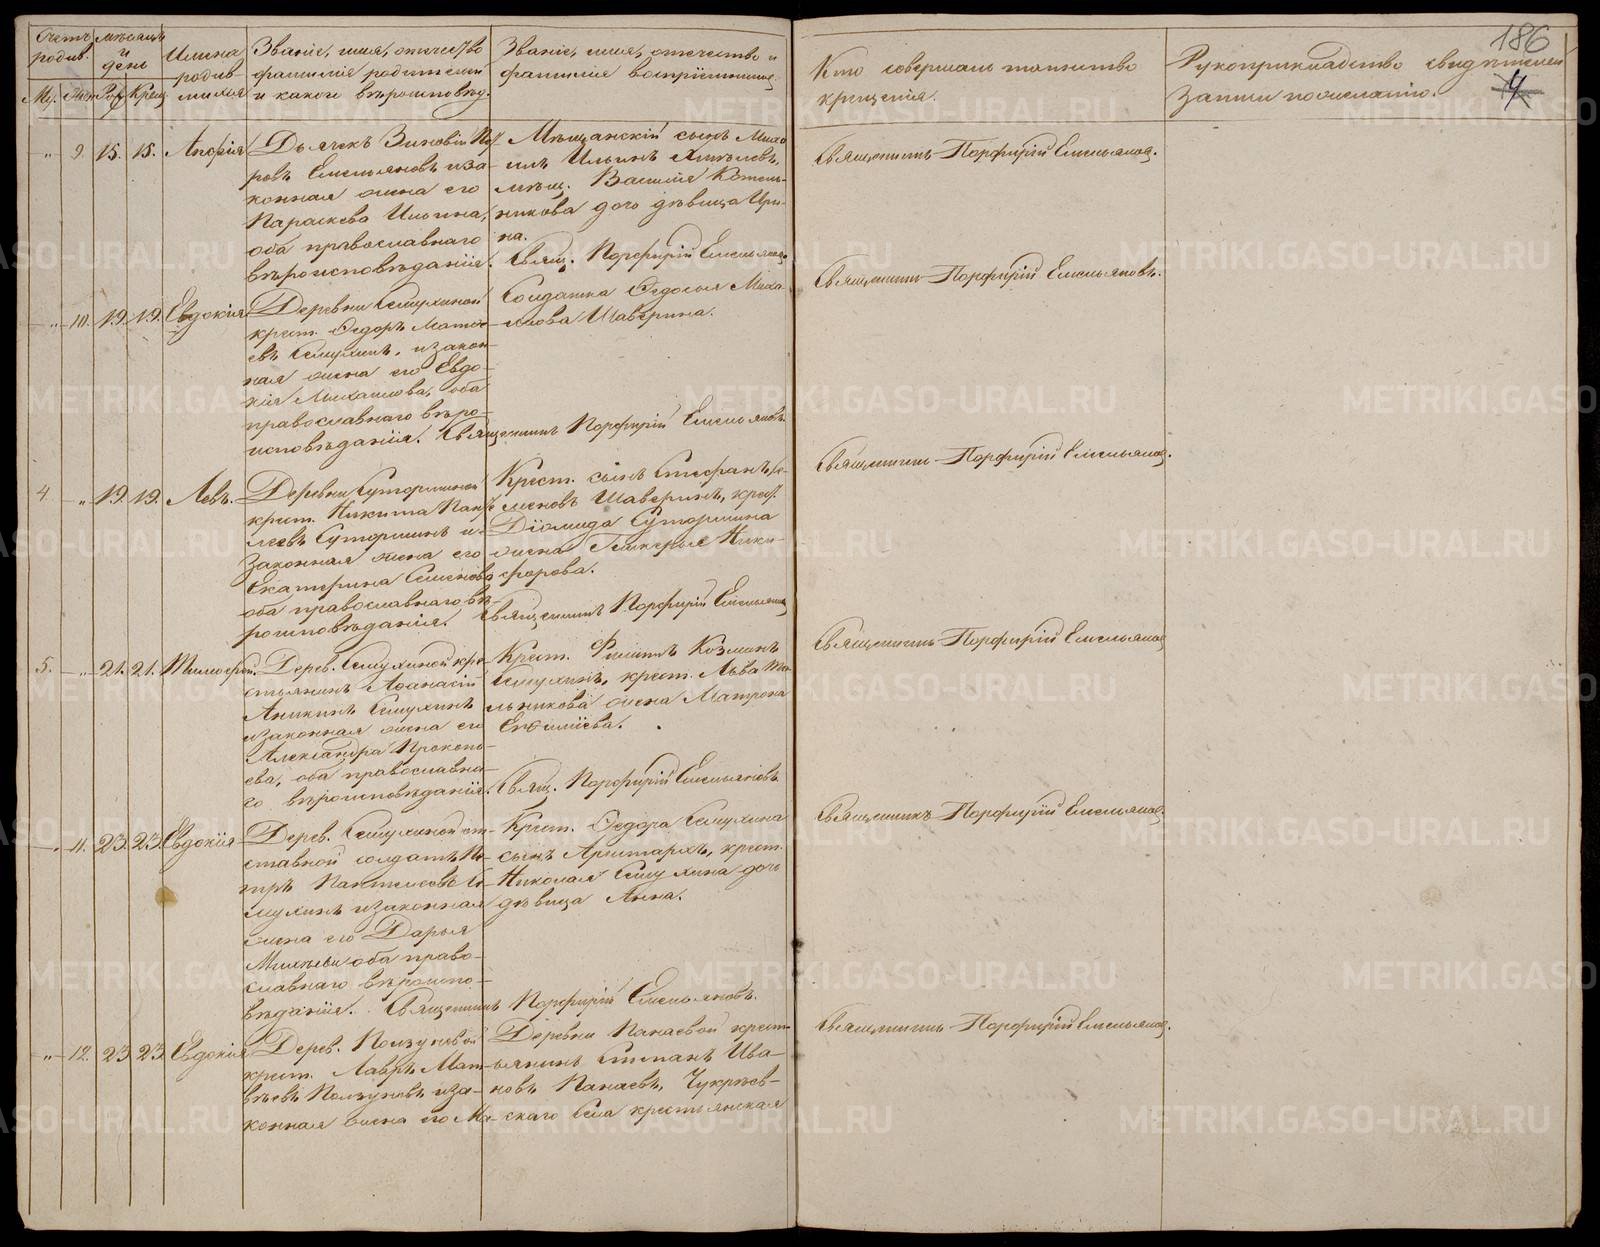 186
4
Счетъ родив.
Мѣсяцъ и день
Имена родив-
шихся
Званіе, имя, отчество
фамилія родителей
и какого вѣроисповѣд.
Званіе, имя, отчество и
фамилія воспріемник.
Кто совершалъ таинство
крещенія.
Рукоприкладство свидѣтелей
записи по желанію.
Му. Жен Рож Крещ
„ 9. 15. 15. Анфія
Дьячекъ Зиновій Пор-
ровъ Емельяновъ и за-
конная жена его
Параскева Ильина,
оба православнаго
вѣроисповѣданія.
Мѣщанскій сынъ Миха-
илъ Ильинъ
мѣщ. Василія Котель-
никова дочь дѣвица Ири-
на.
Свящ. Порфирій Емельяновъ
Священникъ Порфирій Емельяновъ.
„ 10. 19. 19. Евдокія
Деревни Семухиной
крест. Ѳедоръ Матвѣ-
евъ Семухинъ, и закон-
ная жена его Евдо-
кія Михаилова, оба
православнаго вѣро-
исповѣданія.
Солдатка Ѳедосья Миха-
илова Шаверина.
Священникъ Порфирій Емельяновъ.
Священникъ Порфирій Емельяновъ.
4. „ 19. 19. Левъ.
Деревни Суторминой
крест. Никита Пант-
леевъ Суторминъ и
законная жена его
Екатерина Семенова
оба православнаго вѣ-
роисповѣданія.
Крест. сынъ Стефанъ Се-
меновъ Шаверинъ, крест.
Діомида Сутормина
жена Гликерья Ники-
форова.
Священникъ Порфирій Емельяновъ
Священникъ Порфирій Емельяновъ.
5. „ 21. 21. Тимофей.
Дерев. Семухиной кре-
стьянинъ Аѳанасій
Аникинъ Семухинъ
и законная жена его
Александра Прокопь-
ева, оба православна-
го вѣроисповѣданія.
Крест. Филипъ Козминъ
Семухинъ, крест. Льва Ме-
льникова жена Матрона
Евѳиміева.
Свящ. Порфирій Емельяновъ
Священникъ Порфирій Емельяновъ
„ 11. 23. 23. Евдокія
Дерев. Семухиной от-
ставной солдатъ Пе-
тръ Пантелеевъ Се-
мухинъ и законная
жена его Дарья
Михѣева оба право-
славнаго вѣроиспо-
вѣданія.
Крест. Ѳедора Семухина
сынъ Аристархъ, крест.
Николая Семухина дочь
дѣвица Анна.
Священникъ Порфирій Емельяновъ.
Священникъ Порфирій Емельяновъ.
„ 12. 23. 23. Евдокія
Дерев. Ползуновой
крест. Лавръ Мат-
вѣевъ Ползуновъ и за-
конная жена его Ма-
Деревни Панаевой крест-
ьянинъ Степанъ Ива-
новъ Панаевъ, Чукрѣев-
скаго села крестьянская
Священникъ Порфирій Емельяновъ.
METRIKI.GASO-URAL.RU